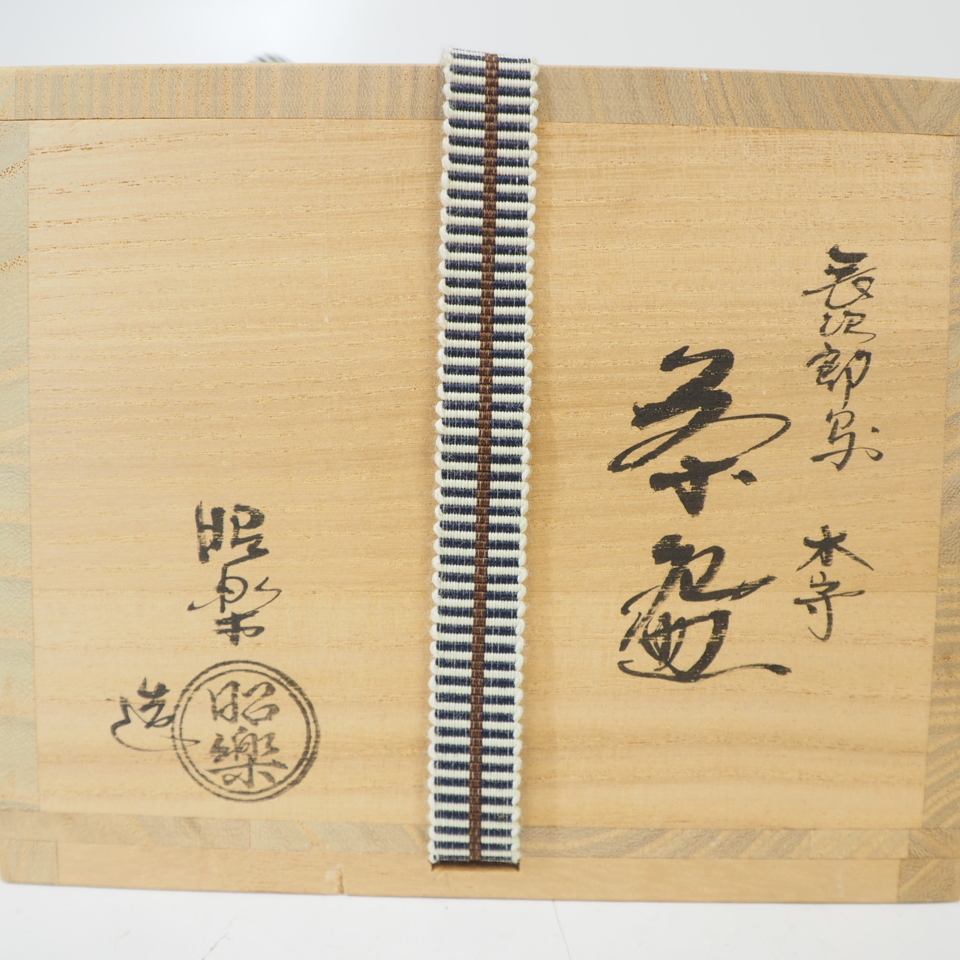 長次郎写 木守
茶碗
昭楽
造
昭樂